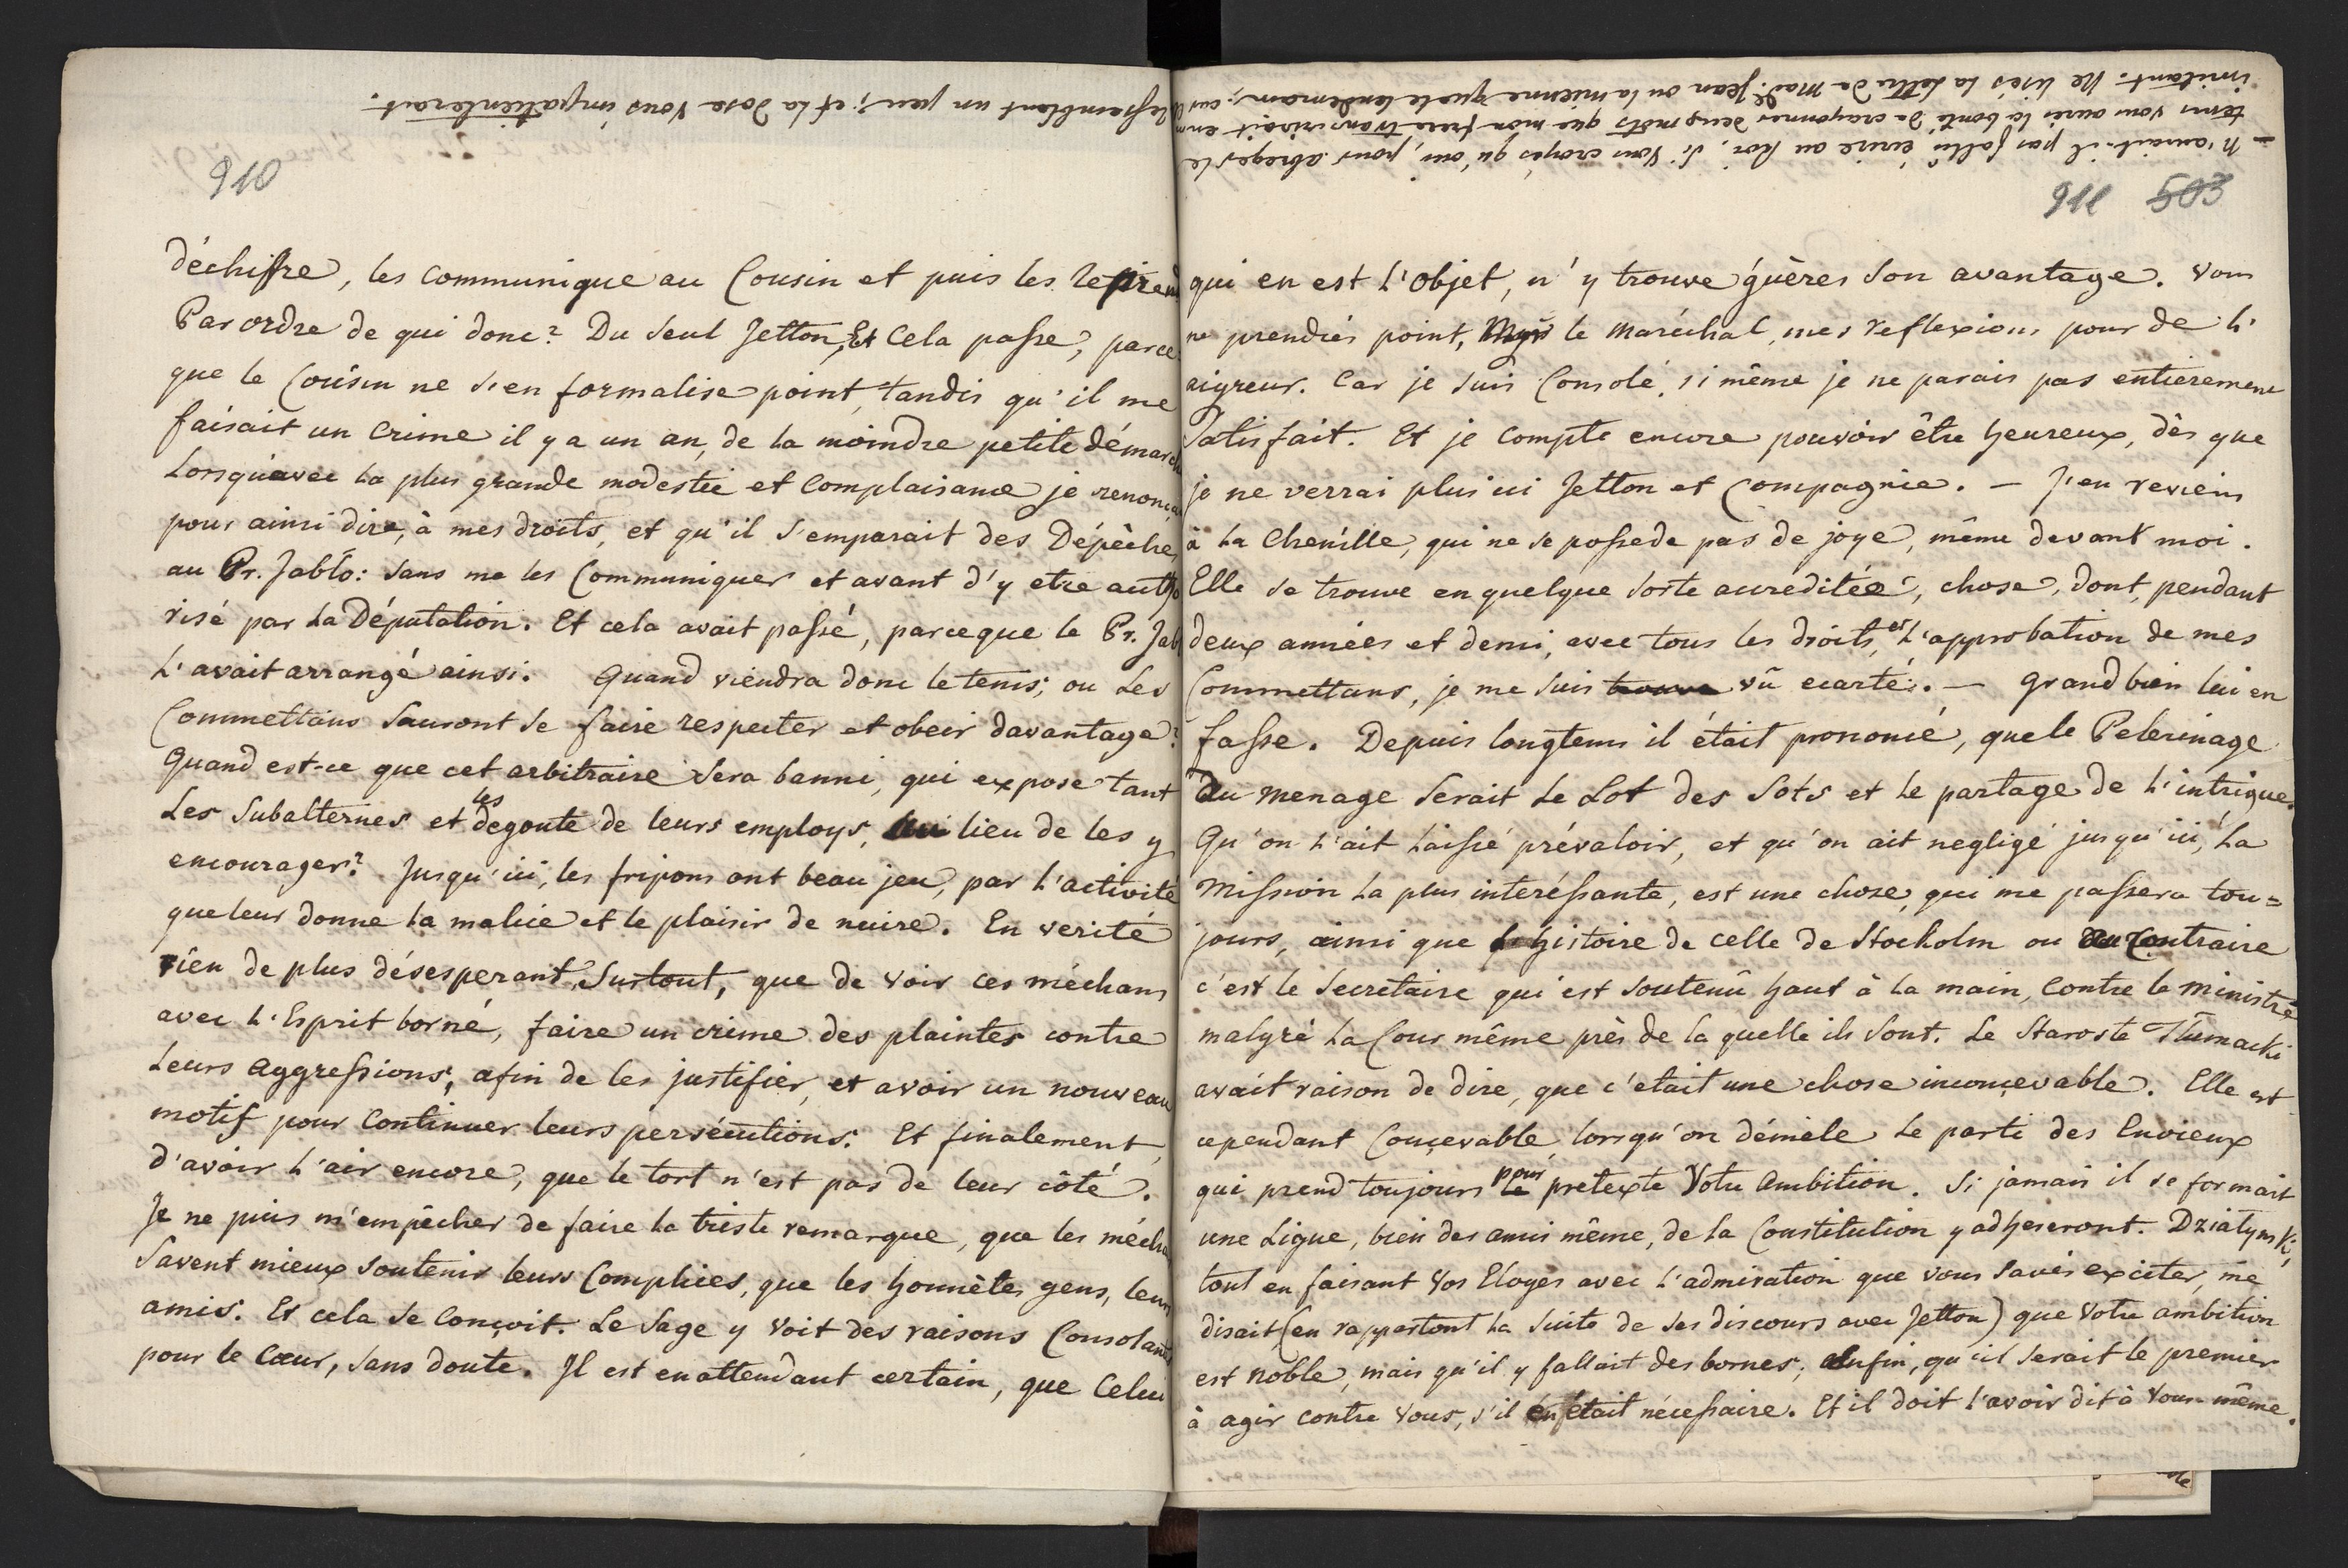 ressemblent un peu; et la dose vous impatienterait.
910
déchifre, les communique au Cousin et puis les reprend
Par ordre de qui donc? Du seul Jetton, Et cela passe, parce
que le Cousin ne s'en formalise point, tandis qu'il me
faisait un crime il y a un an, de la moindre petite démarche
Lorsqu'avec la plus grande modestie et complaisance je renonçai
pour ainsi dire, à mes droits, et qu'il s'emparait des Dépêches
au Pr. Jablo: sans me les communiquer et avant d'y etre autho
risé par la Députation. Et cela avait passé, parceque le Pr. Jab
l'avait arrangé ainsi. Quand viendra donc le tems, ou les
Commettans sauront se faire respecter et obeir davantage?
Quand est-ce que cet arbitraire sera banni, qui expose tant
les Subalternes et les degoute de leurs employs, au lieu de les y
encourager? Jusqu'ici, les fripons ont beau jeu, par l'activité
que leur donne la malice et le plaisir de nuire. En verité
rien de plus désesperant, surtout, que de voir ces méchans
avec l'Esprit borné, faire un crime des plaintes contre
leurs aggressions, afin de les justifier, et avoir un nouveau
motif pour continuer leurs persécutions. Et finalement,
d'avoir l'air encore, que le tort n'est pas de leur côté.
Je ne puis m'empêcher de faire la triste remarque, que les mécha
savent mieux soutenir leurs Complices, que les honnêtes gens, leurs
amis. Et cela se conçoit. Le Sage y voit des raisons Consolantes
pour le Cœur, sans doute. Il est en attendant certain, que celui
– N'aurait-il pas fallû écrire au Roi, si Vous croyés qu'oui, pour abreger le
tems vous auriés la bonté de crayonner deux mots que mon frere transcrirait en
imitant. Ne lisés la lettre de Made. Jean ou la mienne que le lendemain; car
911 503
qui en est l'objet, n'y trouve guères son avantage. Vous
ne prendrés point, Mgr le Maréchal, mes reflexions pour de l'
aigreur. Car je suis Consolé, si même je ne parais pas entierement
Satisfait. Et je compte encore pouvoir être heureux, dès que
je ne verrai plus ici Jetton et Compagnie. — J'en reviens
à la Chenille, qui ne se possede pas de joye, même devant moi.
Elle se trouve en quelque sorte accreditée, chose, dont, pendant
deux années et demi, avec tous les droits, et l'approbation de mes
Commettans, je me suis vû ecarté. — Grand bien lui en
fasse. Depuis longtems il était prononcé, que le Pelerinage
du menage serait le Lot des Sots et le partage de l'intrigue.
Qu'on l'ait laissé prévaloir, et qu'on ait negligé jusqu'ici, la
Mission la plus interéssante, est une chose, qui me passera tou=
jours, ainsi que l'histoire de celle de Stockolm ou au Contraire
c'est le Secretaire qui est soutenû haut à la main, contre le ministre
malgré la Cour même près de la quelle ils sont. Le Staroste Tlumacki
avait raison de dire, que c'etait une chose inconçevable. Elle est
cependant Conçevable, lorsqu'on démèle le parti des Envieux
qui prend toujours pour pretexte Votre ambition. Si jamais il se formait
une Ligue, bien des amis même, de la Constitution y adhereront. Dzialynski,
tout en faisant Vos Eloges avec l'admiration que vous savés exciter, me
disait (en rapportant la suite de ses discours avec Jetton) que Votre ambition
est noble, mais qu'il y fallait des bornes; enfin, qu'il serait le premier
à agir contre Vous, s'il en était nécessaire. Et il doit l'avoir dit à Vous-même.